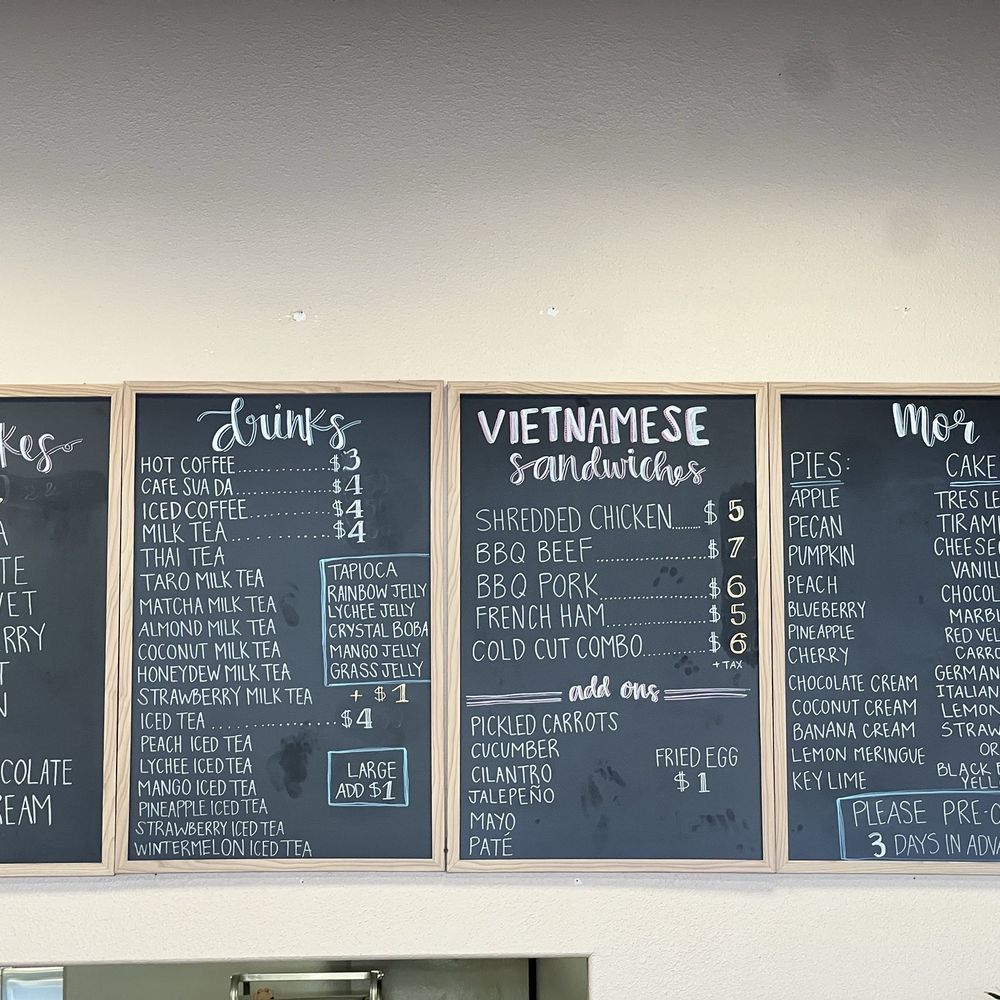 drinks
HOT COFFEE..............$3
CAFE SUA DA............$4
ICED COFFEE............$4
MILK TEA...............$4
THAI TEA
TARO MILK TEA
MATCHA MILK TEA
ALMOND MILK TEA
COCONUT MILK TEA
HONEYDEW MILK TEA
STRAWBERRY MILK TEA
TAPIOCA
RAINBOW JELLY
LYCHEE JELLY
CRYSTAL BOBA
MANGO JELLY
GRASS JELLY
+ $1
ICED TEA..................$4
PEACH ICED TEA
LYCHEE ICED TEA
MANGO ICED TEA
PINEAPPLE ICED TEA
STRAWBERRY ICED TEA
WINTERMELON ICED TEA
LARGE
ADD $1
VIETNAMESE
sandwiches
SHREDDED CHICKEN........$ 5
BBQ BEEF..................$ 7
BBQ PORK..................$ 6
FRENCH HAM................$ 5
COLD CUT COMBO............$ 6
+ TAX
add ons
PICKLED CARROTS
CUCUMBER
CILANTRO
JALEPEÑO
MAYO
PATÉ
FRIED EGG
$1
PIES:
APPLE
PECAN
PUMPKIN
PEACH
BLUEBERRY
PINEAPPLE
CHERRY
CHOCOLATE CREAM
COCONUT CREAM
BANANA CREAM
LEMON MERINGUE
KEY LIME
CAKE
TRES LE
TIRAM
CHEESE
VANILL
CHOCOL
MARBL
RED VEL
CARRO
GERMAN
ITALIAN
LEMON
STRAW
OR
BLACK F
YELL
PLEASE PRE-O
3 DAYS IN ADVA